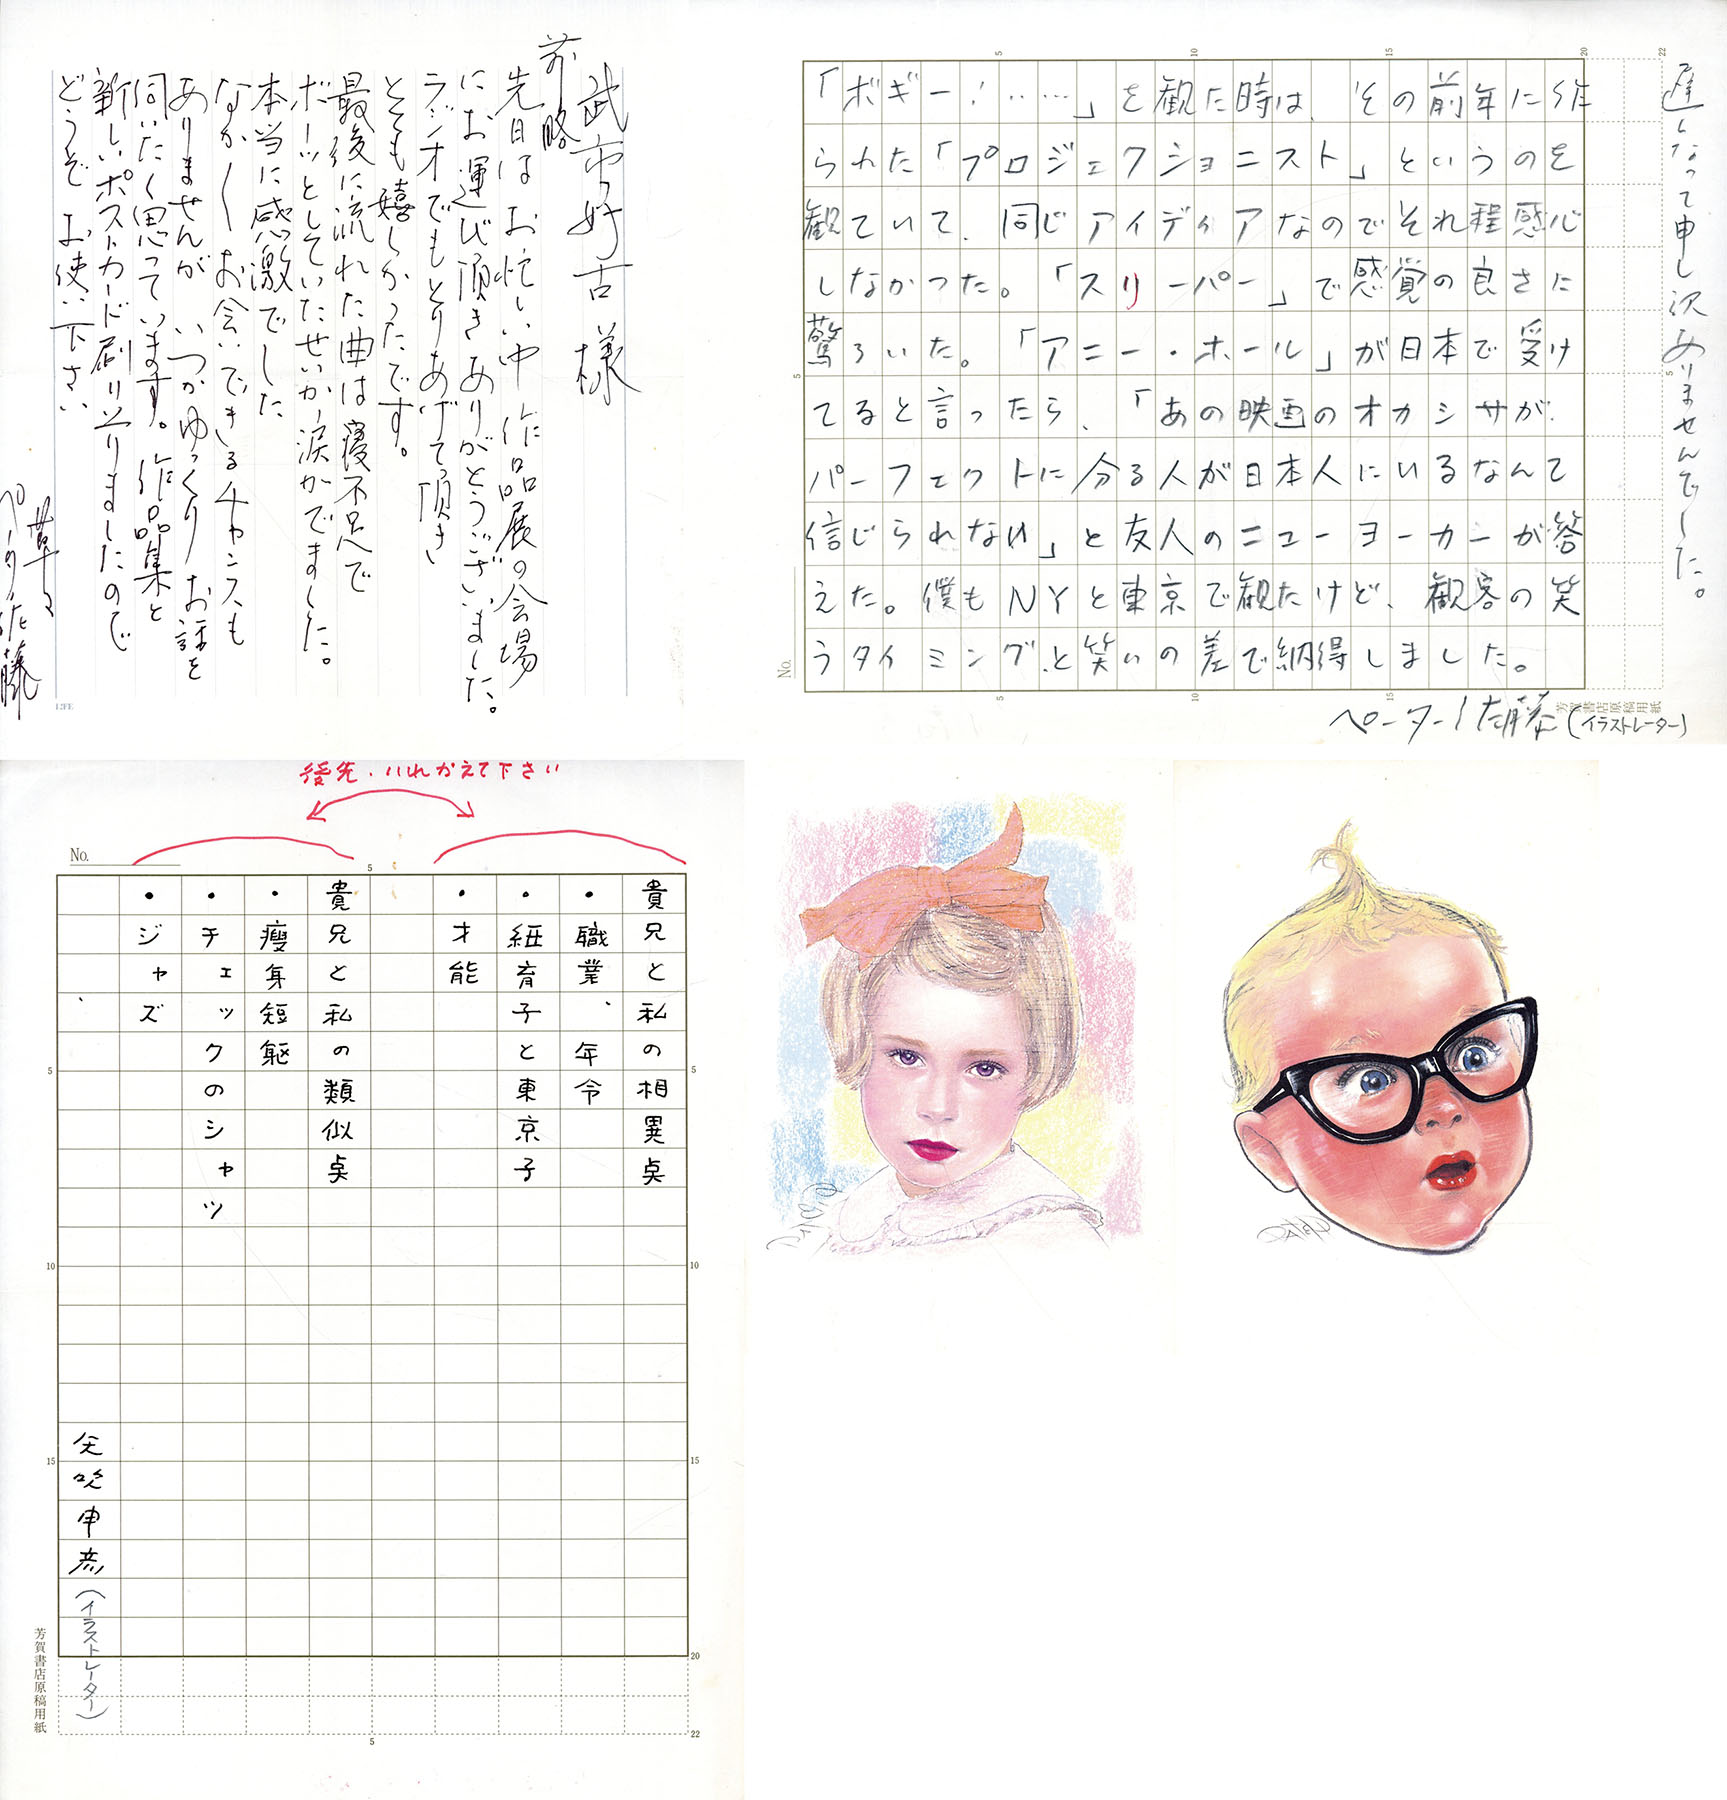 武市好古様
前略
先日はお忙しい中 作品展の会場
にお運び頂き ありがとうございました。
ラジオでもとりあげて頂き
とても嬉しかったです。
最後に流れた曲は寝不足で
ボーッとしていたせいか涙がでました。
本当に感激でした
なか〱お会いできるチャンスも
ありませんが いつかゆっくりお話を
伺いたく思っています。作品集と
新しいポストカード刷り上りましたので
どうぞお使い下さい
草々
ペーター佐藤
LIFE
遅くなって申し訳ありませんでした。
「ボギー!‥‥」を観た時は、その前年に作
られた「プロジェクショニスト」というのを
観ていて、同じアイディアなのでそれ程感心
しなかった。「スリーパー」で感覚の良さに
驚ろいた。「アニー・ホール」が日本で受け
てると言ったら、「あの映画のオカシサが、
パーフェクトに分る人が日本人にいるなんて
信じられない」と友人のニューヨーカーが答
えた。僕もNYと東京で観たけど、観客の笑
うタイミングと笑いの差で納得しました。
ペーター佐藤(イラストレーター)
No.
5
10
15
20
22
5
5
5
10
15
芳賀書店原稿用紙
後先・いれかえて下さい
No.
貴兄と私の相異点
・職業、年令
・紐育子と東京子
・才能
貴兄と私の類似点
・瘦身短軀
・チェックのシャツ
・ジャズ
矢吹申彦(イラストレーター)
5
5
10
15
5
10
15
20
22
5
芳賀書店原稿用紙
PATER